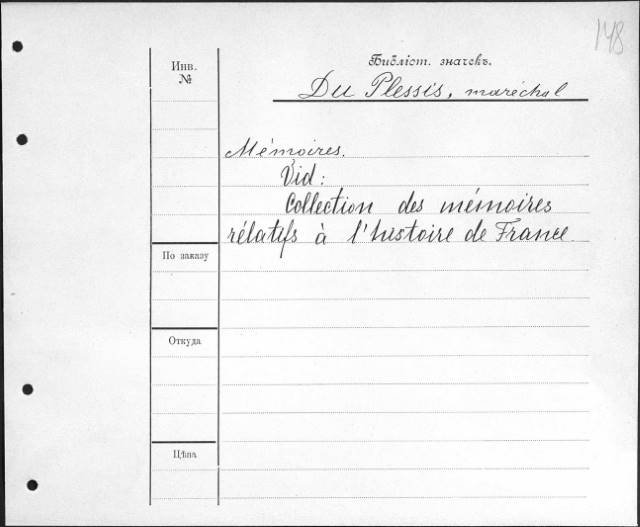 148
Библіот. значекъ.
Инв.
№
Du Plessis, maréchal
Mémoires.
Vid:
Collection des mémoires
rélatifs à l'histoire de France.
По заказу
Откуда
Цѣна